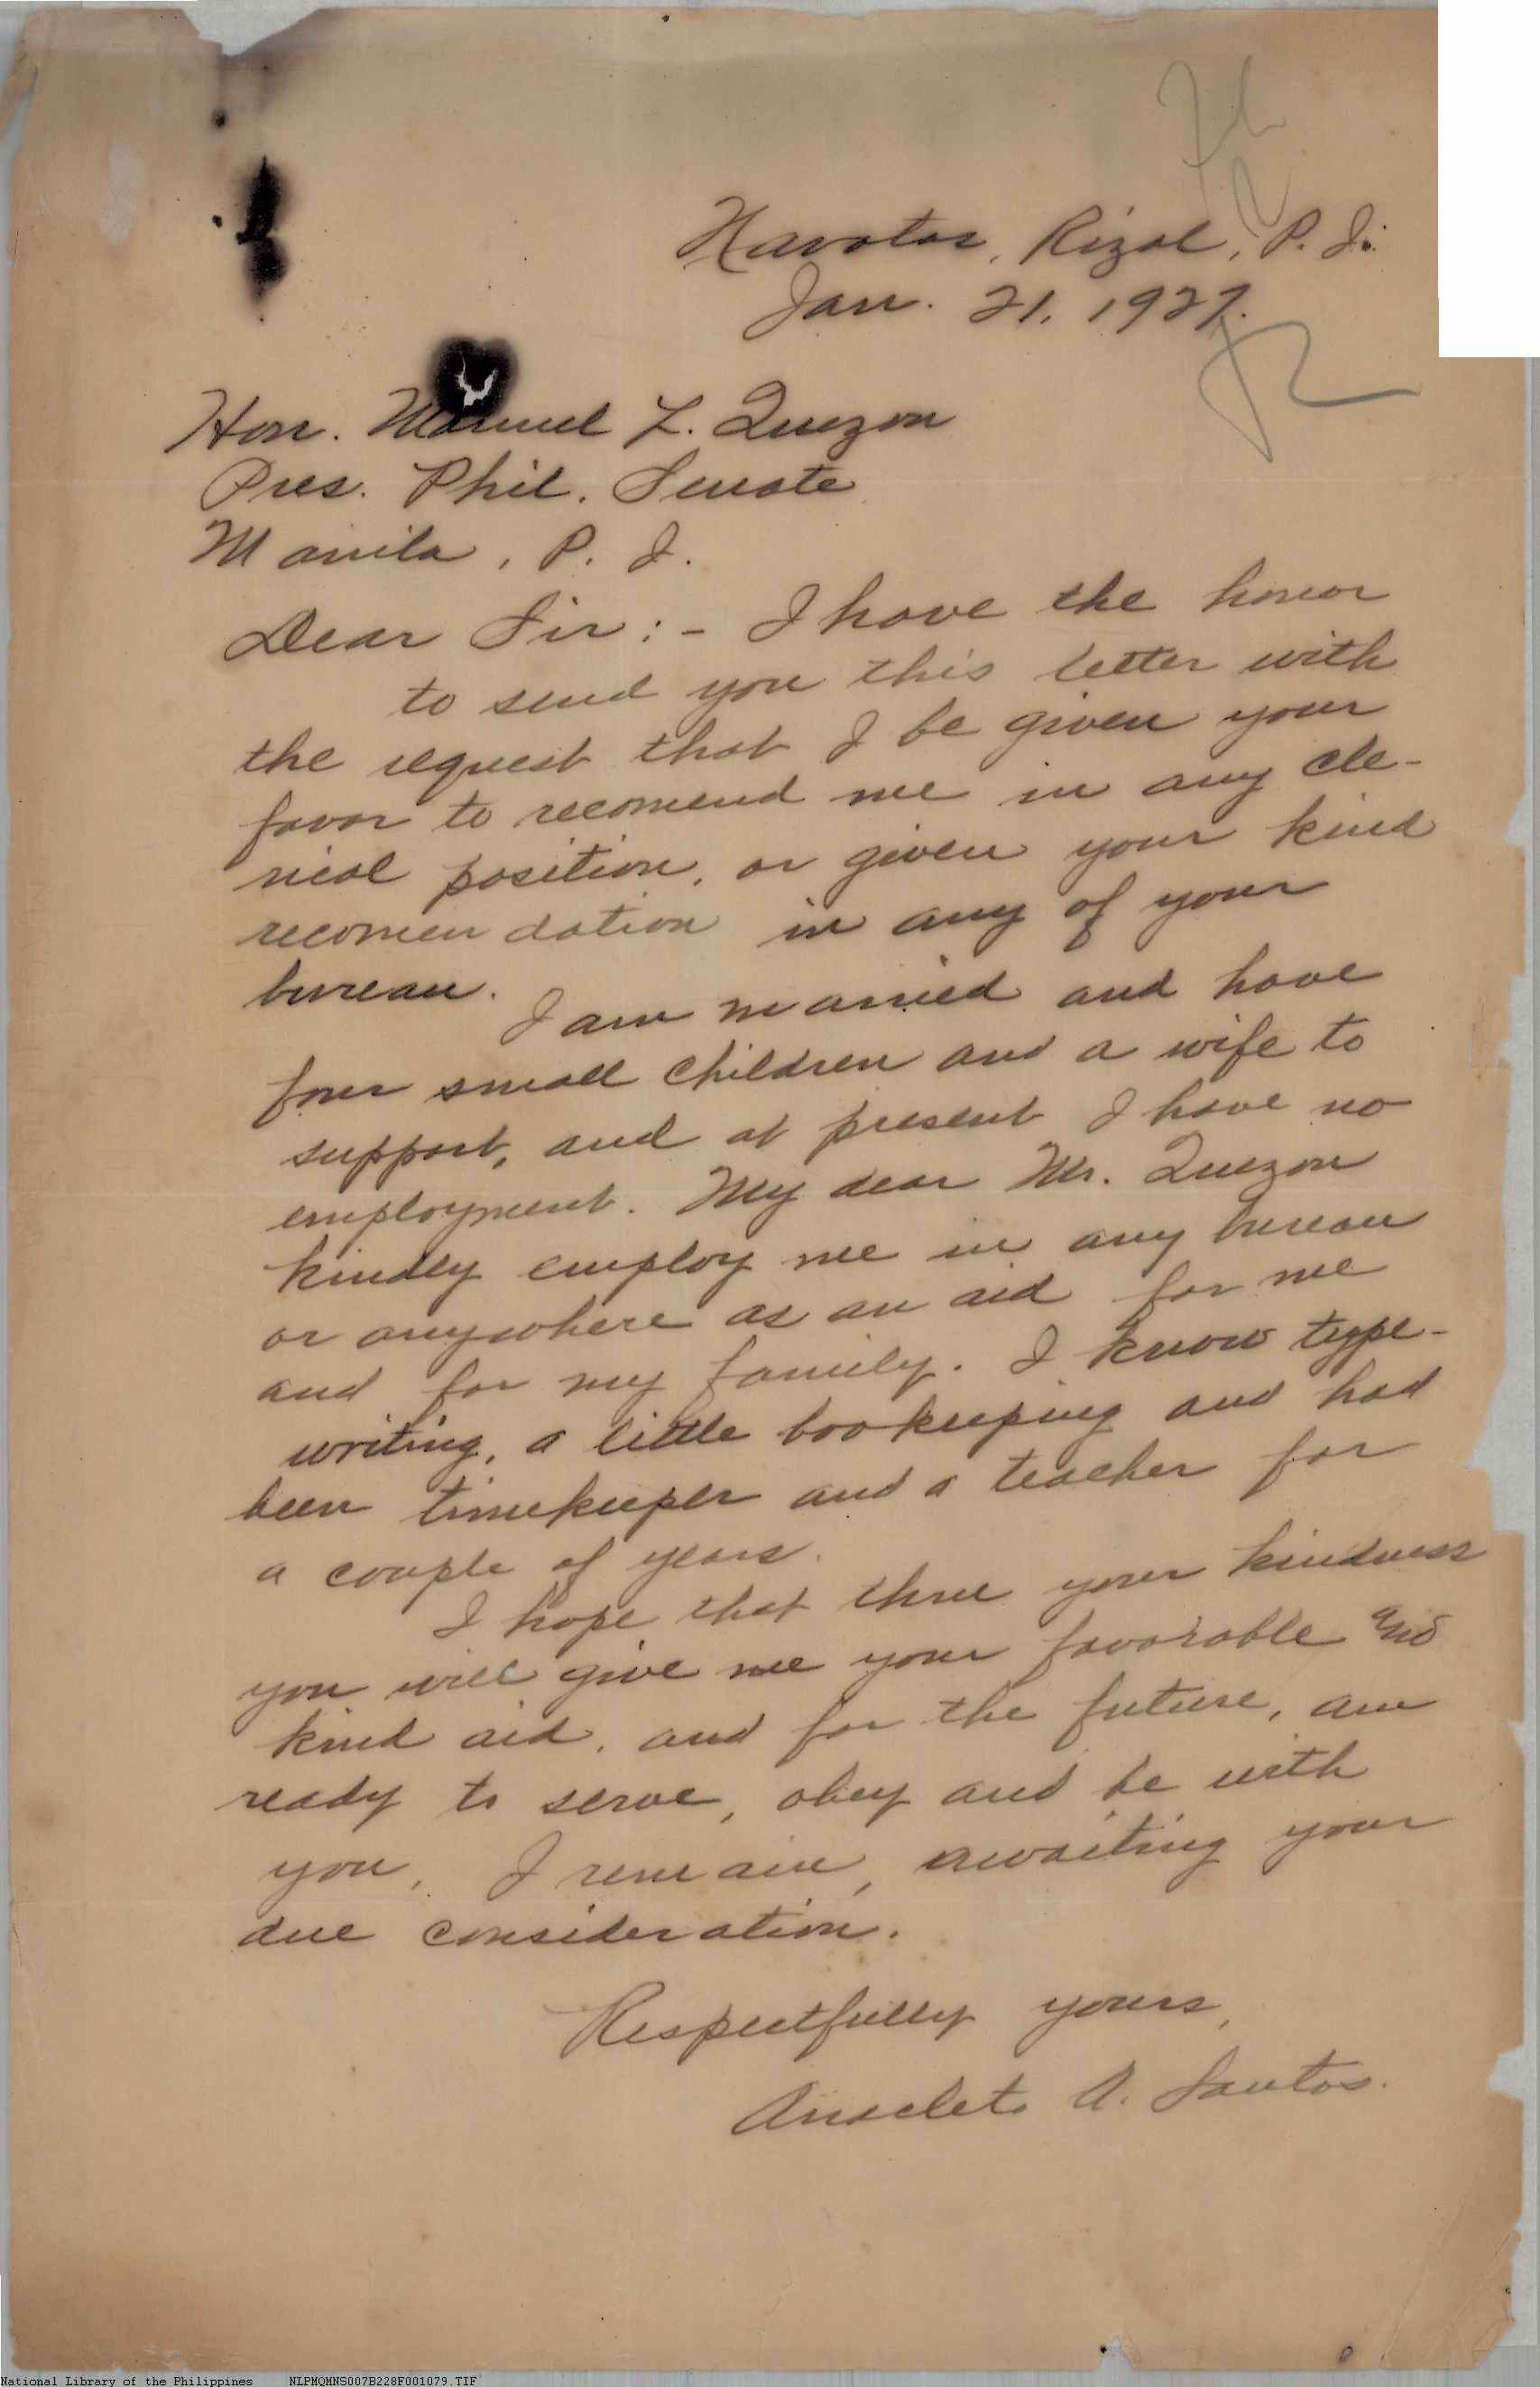 Navotas, Rizal, P. I.
Jan. 21, 1927.
Hon. Manuel L. Quezon
Pres. Phil. Senate
Manila, P. I.
Dear Sir:- I have the honor
to send you this letter with
the request that I be given your
favor to recomend me in any cle-
rical position, or given your kind
recomendation in any of your
bureau.
I am married and have
four small children and a wife to
support, and at present I have no
employment. My dear Mr. Quezon
kindly employ me in any bureau
or anywhere as an aid for me
and for my family. I know type-
writing, a little bookeeping and had
been timekeeper and a teacher for
a couple of years.
I hope that thru your kindness
you will give me your favorable and
kind aid, and for the future, am
ready to serve, obey and be with
you, I remain, awaiting your
due consideration.
Respectfully yours,
Anacleto A. Santos.
National Library of the Philippines NLPMQMNS007B228F001079.TIF